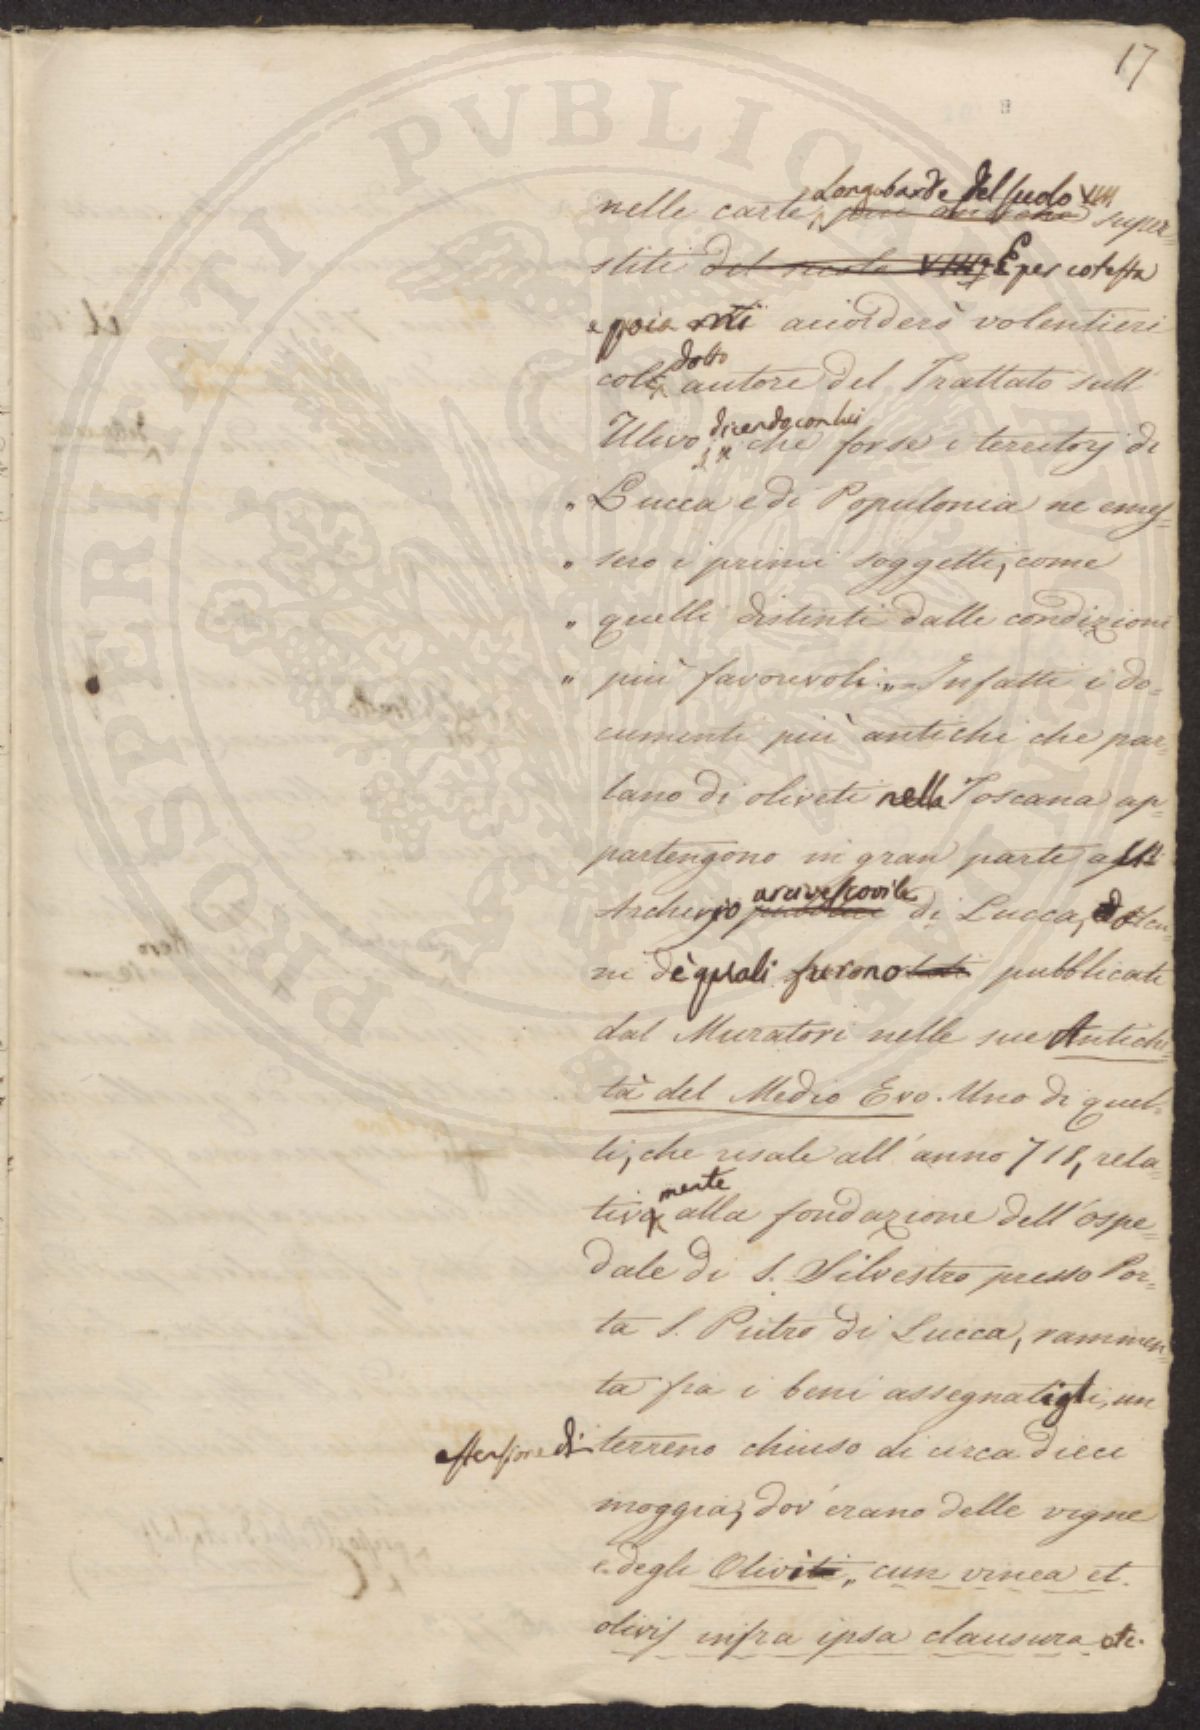 17
Longobarde del secolo VIII
nelle carte più antiche super=
stiti del secolo VIII, E per cotesta
poi mi accorderò volentieri
dotto
coll' autore del Trattato sull'
dicendo con lui
Ulivo, che forse i territorj di
" Lucca e di Populonia ne emes=
" sero i primi soggetti, come
" quelli distinti dalle condizioni
" più favorevoli „ = Infatti i do=
cumenti più antichi che par=
lano di oliveti nella Toscana ap=
partengono in gran parte all'
arcivescovile
Archivio pubblico di Lucca, alcu=
ni de' quali furono stati pubblicati
dal Muratori nelle sue Antichi=
tà del Medio Evo. Uno di quel=
li, che risale all'anno 718, rela=
mente
tiva alla fondazione dell'ospe=
dale di S. Silvestro presso Por=
ta S. Pietro di Lucca, rammen=
ta fra i beni assegnatigli, un
estensione di
terreno chiuso di circa dieci
moggia, dov'erano delle vigne
e degli Oliviti „ cun vinea et
olivis infra ipsa clausura etc.